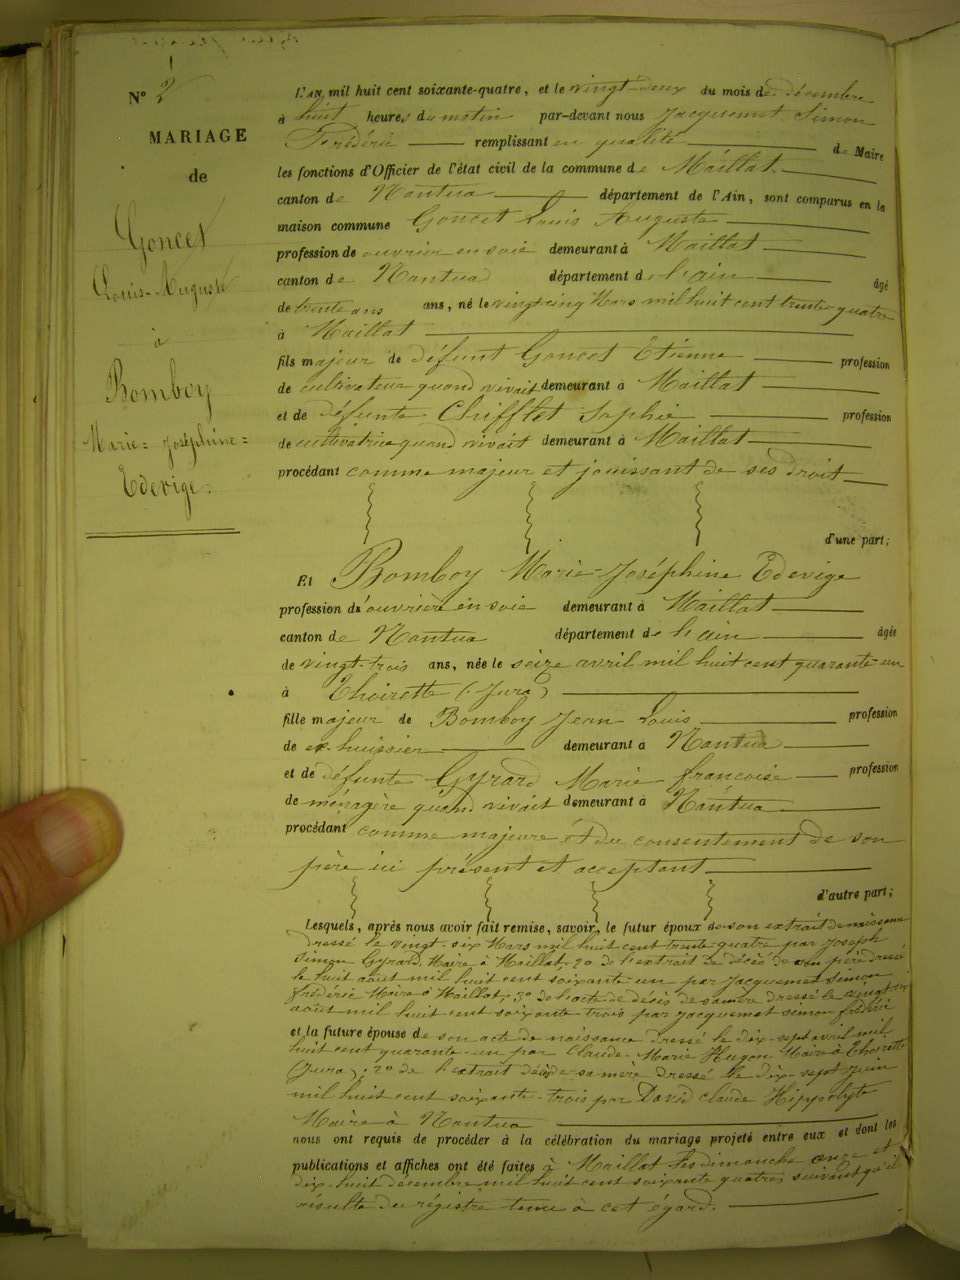 N° 2
MARIAGE
de
Goncet
Louis-Auguste
à
Bomboy
Marie=Joséphine=
Edevige.
L'AN mil huit cent soixante-quatre, et le vingt-deux du mois de décembre
à huit heures du matin par-devant nous Jacquemet Simon
Frédéric remplissant en qualité de Maire
les fonctions d'Officier de l'état civil de la commune de Maillat
canton de Nantua département de l'Ain, sont comparus en la
maison commune Goncet Louis Auguste
profession de ouvrier en soie demeurant à Maillat
canton de Nantua département de l'ain âgé
de trente ans ans, né le vingt cinq Mars mil huit cent trente quatre
à Maillat
fils majeur de défunt Goncet Etienne profession
de cultivateur quand vivait demeurant à Maillat
et de défunte Chifflet Sophie profession
de cultivatrice quand vivait demeurant à Maillat
procédant comme majeur et jouissant de ses droit
d'une part;
Et Bomboy Marie-Joséphine Edevige
profession d'ouvrière en soie demeurant à Maillat
canton de Nantua département de l'ain âgée
de vingt-trois ans, née le seize avril mil huit cent quarante-un
à Thoirette (Jura)
fille majeur de Bomboy Jean-Louis profession
de ex-huissier demeurant à Nantua
et de défunte Gyrard Marie-françoise profession
de ménagère quand vivait demeurant à Nantua
procédant comme majeure et du consentement de son
père ici présent et acceptant
d'autre part;
Lesquels, après nous avoir fait remise, savoir, le futur époux de son extrait de naissance
dressé le vingt-six Mars mil huit cent trente-quatre par Joseph
Simon Gyrard, Maire à Maillat, 2° de l'extrait de décès de son père dressé
le huit août mil huit cent soixante-un par Jacquemet Simon
frédéric Maire à Maillat, 3° de l'acte de décès de sa mère dressé le vingt
août mil huit cent soixante trois par Jacquemet simon frédéric
et la future épouse de son acte de naissance dressé le dix-sept avril mil
huit cent quarante-un par Claude-Marie Hugon Maire à Thoirette
(Jura), 2° de l'extrait décès de sa mère dressé le dix-sept juin
mil huit cent soixante-trois par David claude Hippolyte
Maire à Nantua
nous ont requis de procéder à la célébration du mariage projeté entre eux et dont les
publications et affiches ont été faites à Maillat les dimanche onze et
dix-huit décembre mil huit cent soixante quatre, suivant qu'il
résulte du régistre tenu à cet égard.